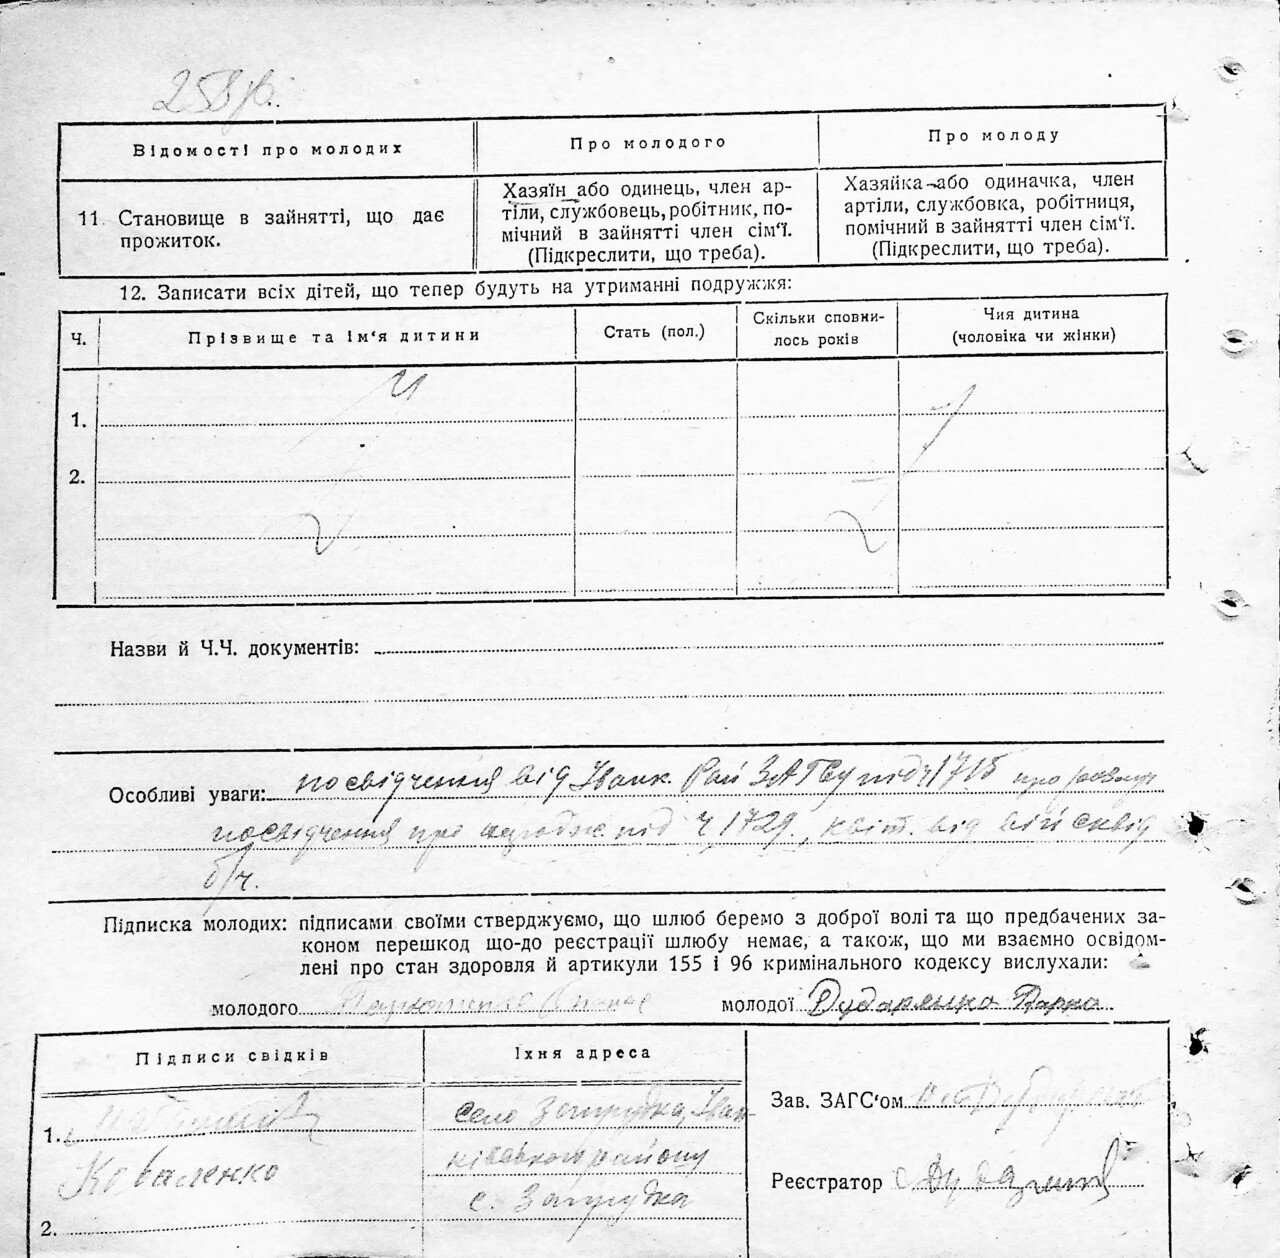 258
Відомості про молодих
Про молодого
Про молоду
11. Становище в зайнятті, що дає
прожиток.
Хазяїн або одинець, член ар-
тіли, службовець, робітник, по-
мічний в зайнятті член сім'ї.
(Підкреслити, що треба).
Хазяйка або одиначка, член
артіли, службовка, робітниця,
помічний в зайнятті член сім'ї.
(Підкреслити, що треба).
12. Записати всіх дітей, що тепер будуть на утриманні подружжя:
Ч.
Прізвище та ім'я дитини
Стать (пол.)
Скільки сповни-
лось років
Чия дитина
(чоловіка чи жінки)
1.
2.
Назви й Ч.Ч. документів:
Особливі уваги: посвідчення від Іванк. Рай ЗАГСу під ч 1715 про
посвідчення про під ч 1729, квіт. від
б/ч.
Підписка молодих: підписами своїми стверджуємо, що шлюб беремо з доброї волі та що предбачених за-
коном перешкод що-до реєстрації шлюбу немає, а також, що ми взаємно освідом-
лені про стан здоровля й артикули 155 і 96 кримінального кодексу вислухали:
молодого
молодої Дударенко
Підписи свідків
Їхня адреса
1.
Коваленко
2.
село Запрудка, Іван-
ківського району
с. Запрудка
Зав. ЗАГС'ом
Реєстратор